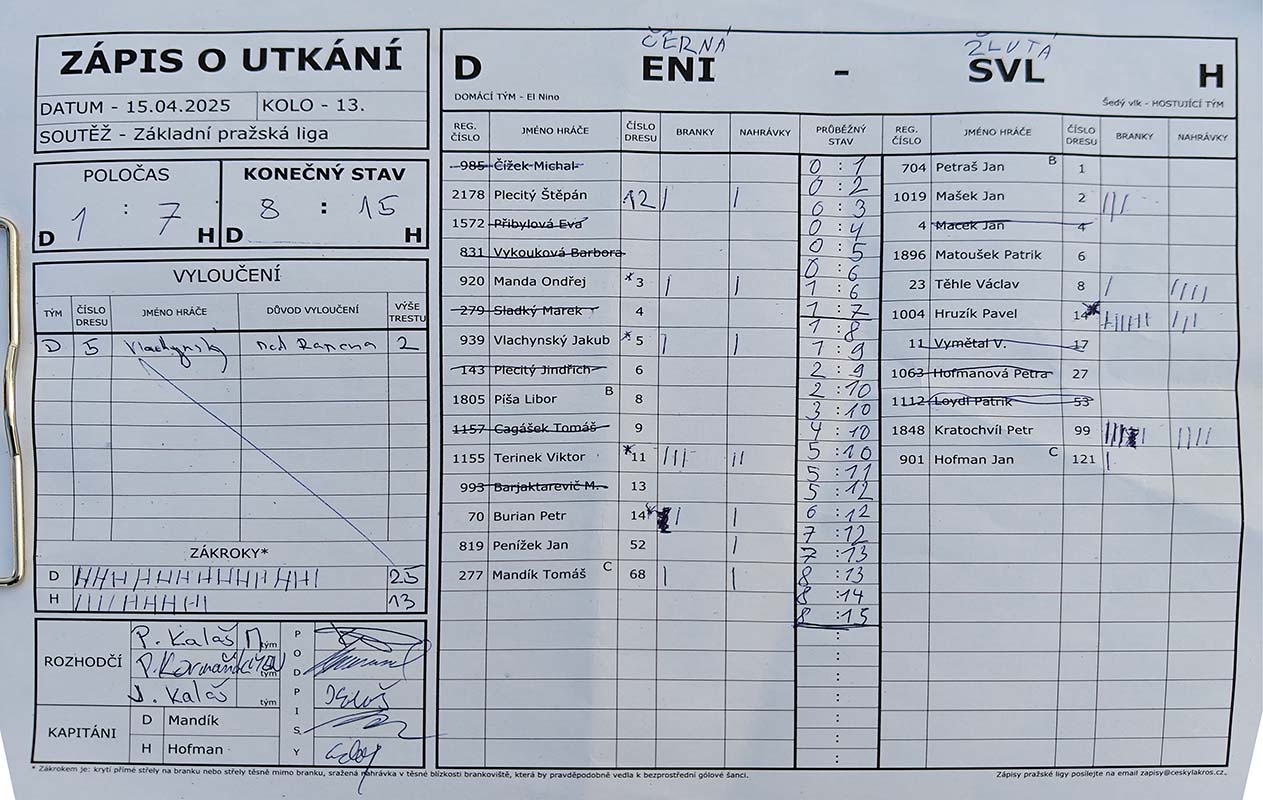 ZÁPIS O UTKÁNÍ
DATUM - 15.04.2025 KOLO - 13.
SOUTĚŽ - Základní pražská liga
POLOČAS KONEČNÝ STAV
D 1 : 7 H D 8 : 15 H
VYLOUČENÍ
TÝM ČÍSLO DRESU JMÉNO HRÁČE DŮVOD VYLOUČENÍ VÝŠE TRESTU
D 5 Vlachynský 2
ZÁKROKY*
D 25
H 13
ROZHODČÍ
P. Kalaš tým
tým
J. Kalaš tým
PODPISY
KAPITÁNI
D Mandík
H Hofman
ČERNÁ ŽLUTÁ
D ENI - SVL H
DOMÁCÍ TÝM - El Nino Šedý vlk - HOSTUJÍCÍ TÝM
REG. ČÍSLO JMÉNO HRÁČE ČÍSLO DRESU BRANKY NAHRÁVKY PRŮBĚŽNÝ STAV REG. ČÍSLO JMÉNO HRÁČE ČÍSLO DRESU BRANKY NAHRÁVKY
985 Čížek Michal 0 : 1 704 Petraš Jan B 1
2178 Plecitý Štěpán 12 | | 0 : 2 1019 Mašek Jan 2 |||
1572 Přibylová Eva 0 : 3 4 Macek Jan 4
831 Vykouková Barbora 0 : 4 1896 Matoušek Patrik 6
920 Manda Ondřej *3 | | 0 : 5 23 Těhle Václav 8 | ||||
279 Sladký Marek 4 0 : 6 1004 Hruzík Pavel 14 |||
939 Vlachynský Jakub *5 | | 1 : 6 11 Vymětal V. 17
143 Plecitý Jindřich 6 1 : 7 1063 Hofmanová Petra 27
1805 Píša Libor B 8 1 : 8 1112 Loydl Patrik 53
1157 Cagášek Tomáš 9 1 : 9 1848 Kratochvíl Petr 99 ||||
1155 Terinek Viktor *11 ||| || 2 : 9 901 Hofman Jan C 121 |
993 Barjaktarevič M. 13 2 : 10
70 Burian Petr 14* | | 3 : 10
819 Penížek Jan 52 | 4 : 10
277 Mandík Tomáš C 68 | | 5 : 10
5 : 11
5 : 12
6 : 12
7 : 12
7 : 13
8 : 13
8 : 14
8 : 15
* Zákrokem je: krytí přímé střely na branku nebo střely těsně mimo branku, sražená nahrávka v těsné blízkosti brankoviště, která by pravděpodobně vedla k bezprostřední gólové šanci. Zápisy pražské ligy posílejte na email zapisy@ceskylakros.cz.